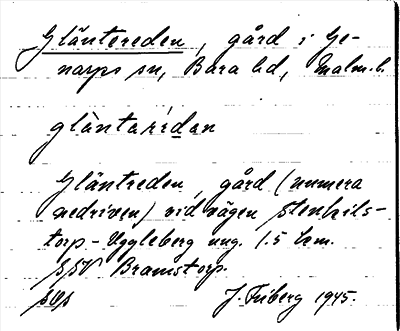 Gläntereden, gård i Ge-
narps sn, Bara hd, Malm. l.
gläntaridan
Gläntreden, gård (numera
nedriven) vid vägen Stenhils-
torp - Uggleberg ung. 1.5 km.
SSV Bramstorp.
J. Friberg 1945.